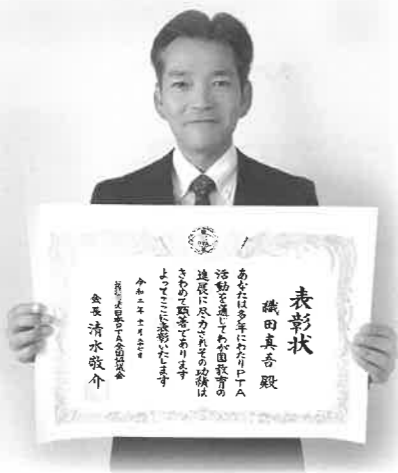 表彰状
織田真吾 殿
あなたは多年にわたりPTA
活動を通じてわが国教育の
進展に尽力されその功績は
きわめて顕著であります
よってここに表彰いたします
令和二年十一月二十七日
日本PTA全国協議会
会長 清水敬介